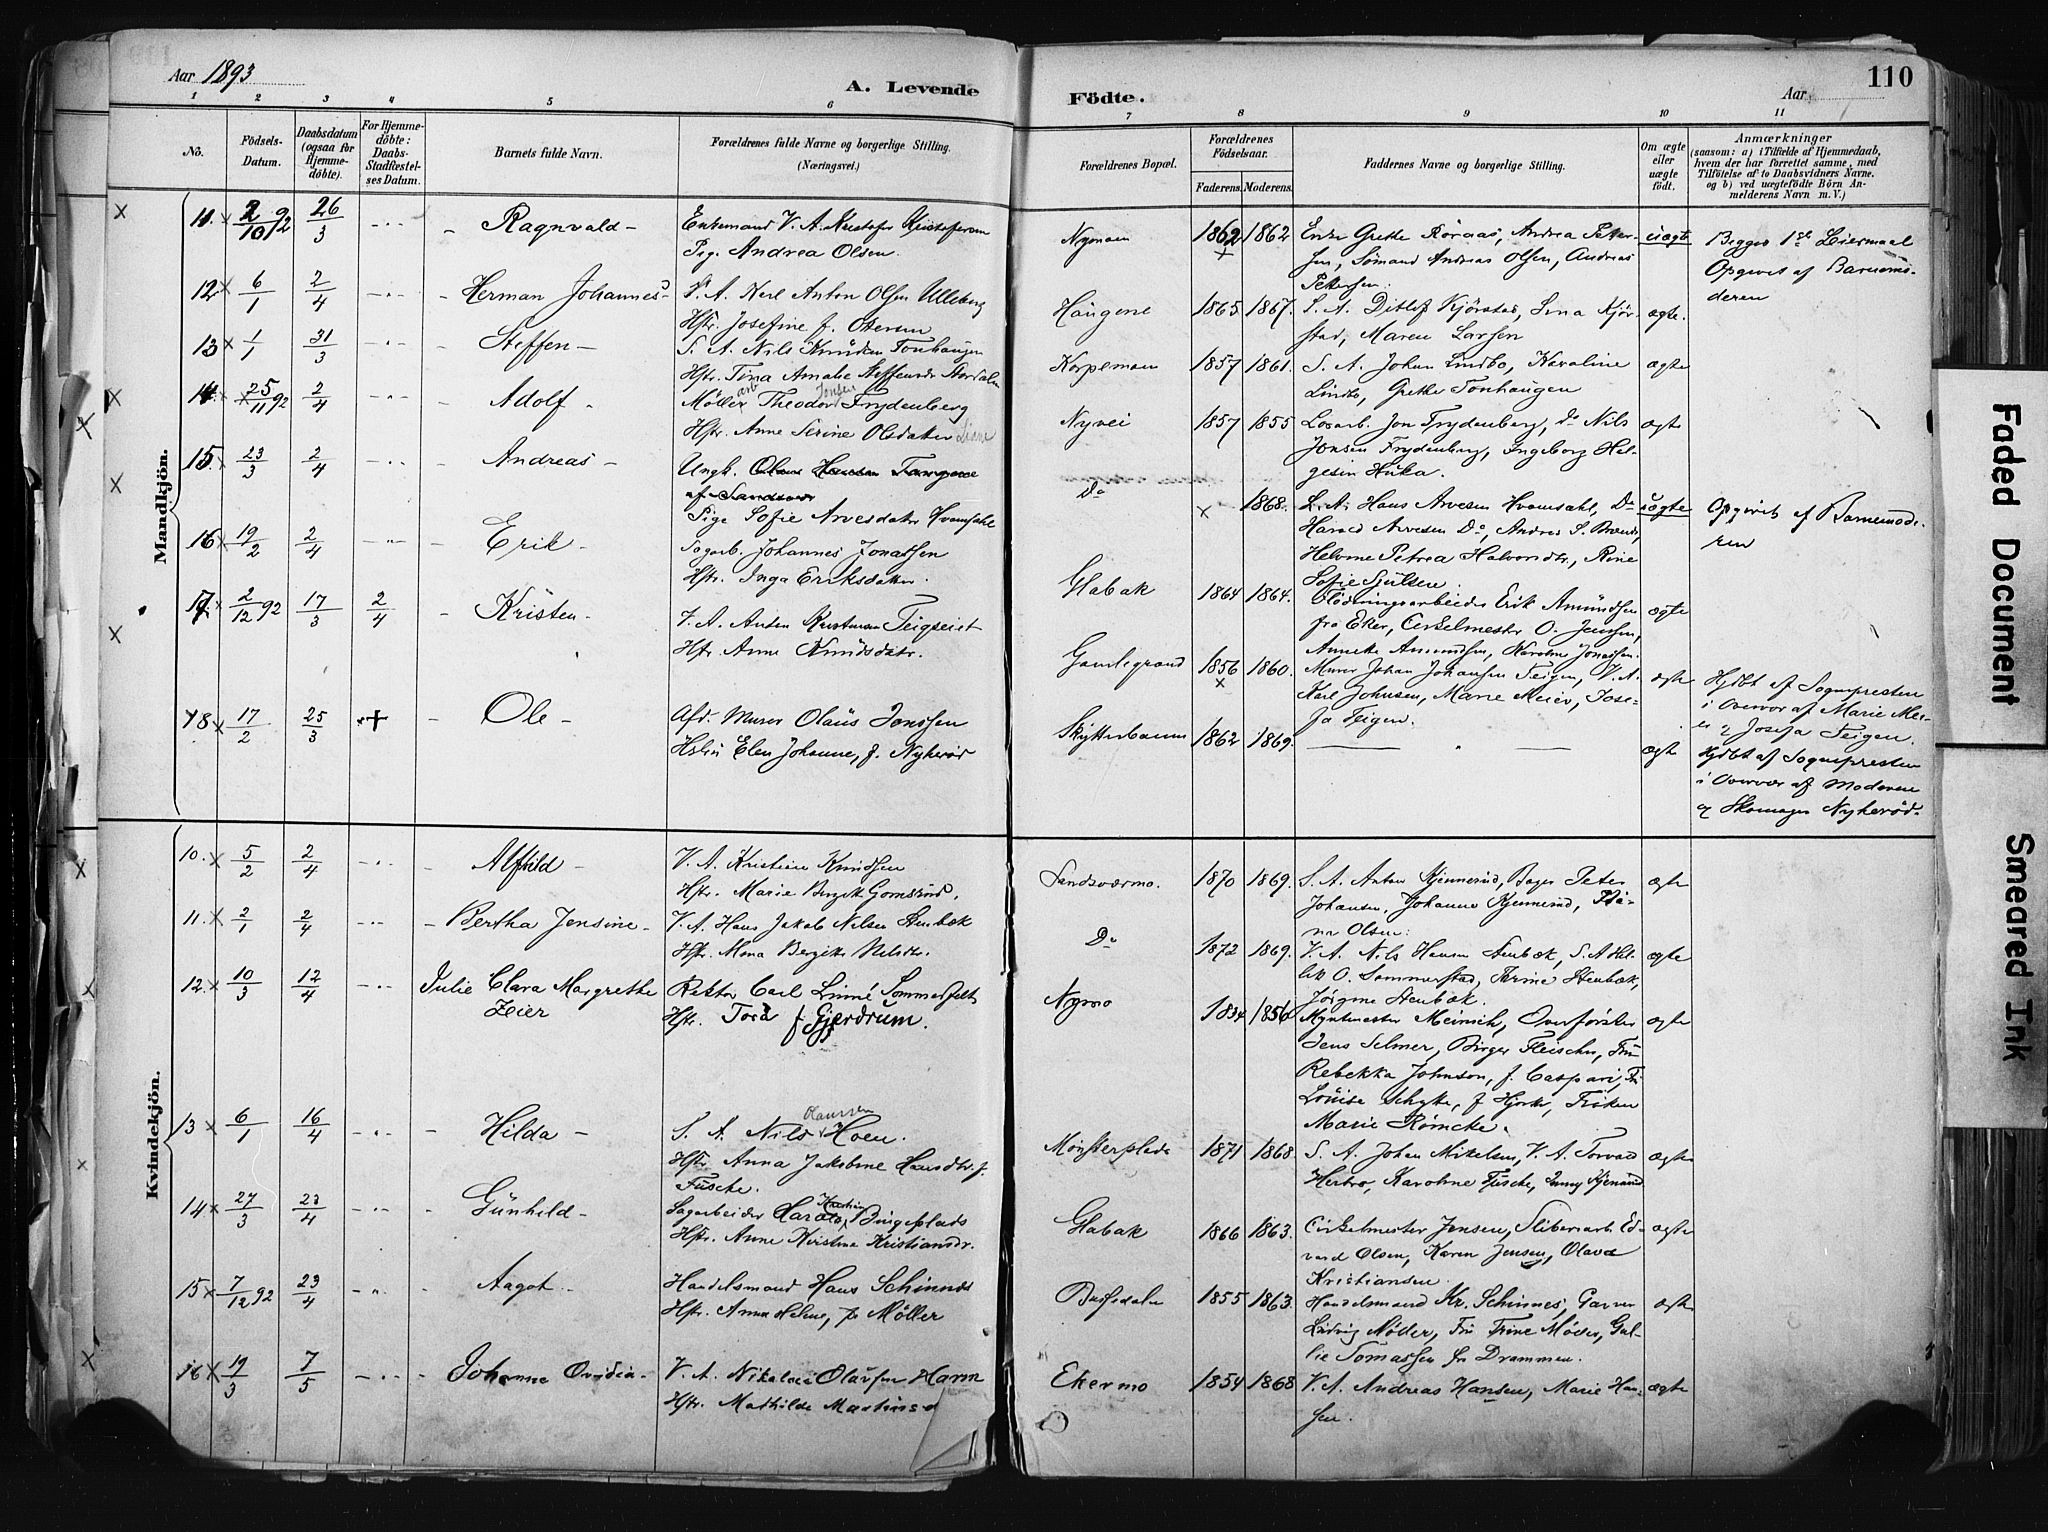 Aar 1893
A. Levende
Födte.
Aar
110
1 2 3 4 5 6 7 8 9 10 11
No.
Födsels-Datum.
Daabsdatum (ogsaa for Hjemme-döbte).
For Hjemme-döbte: Daabs-Stadfæstel-ses Datum.
Barnets fulde Navn.
Forældrenes fulde Navne og borgerlige Stilling. (Næringsvei.)
Forældrenes Bopæl.
Forældrenes Födselsaar.
Faderens. Moderens.
Faddernes Navne og borgerlige Stilling.
Om ægte eller uægte födt.
Anmærkninger
(saasom: a) i Tilfælde af Hjemmedaab, hvem der har forrettet samme, med Tilföielse af to Daabsvidners Navne, og b) ved uægtefödte Börn An-melderens Navn m. V.)
Mandkjön.
11. 2/10 92 26/3 Ragnvald Enkemand V. A. Kristofer Kristofersen
Pig. Andrea Olsen.
Nymoen 1862 1862 Enke Grethe Röraas, Andrea Peter-
sen, Sömand Andreas Olsen, Andreas
Pettersen.
uægte Begges 1ste Leiermaal
Opgivet af Barnemo-
deren
12 6/1 2/4 Herman Johannes V. A. Karl Anton Olsen Ulleberg
Hstr. Josefine f. Olsen
Haugene 1865 1867. S. A. Ditlef Kjörstad, Lina Kjör-
stad, Maren Larsen
ægte.
13 1/1 31/3 Steffen S. A. Nils Knudsen Tonhaugen
Hstr. Tina Amalie Steffensdr
Korpemoen 1857 1861. S. A. Johan Lindbo, Karoline
Lindbo, Grethe Tonhaugen
ægte
14 25/11 92 2/4 Adolf Möllerarb Theodor Jonsen Frydenberg
Hstr. Anne Serine Olsdatter
Nyvei 1857 1855 Losarb. Jon Frydenberg, Do Nils
Jonsen Frydenberg, Ingeborg Hel-
gesen Huka.
ægte
15 23/3 2/4 Andreas Ungk. Olaus Hansen Tangene
af Sandsvær
Pige Sofie Arvesdatter Hvamsahl
Do 1868. L. A. Hans Arvesen Hvamsahl, Do
Harald Arvesen Do, Andrea S.
Helene Petrea Halvorsdtr.,
Sofie
uægte Opgivet af Barnemode-
ren
16 19/2 2/4 Erik Sagarb. Johannes Jonassen
Hstr. Inga Eriksdatter.
Glabak 1864 1864. Erik Amundsen
fra Eker, Cirkelmester O. Jensen,
Annette Amundsen, Karoline Jonassen.
ægte
17 2/12 92 17/3 2/4 Kristen V. A. Anton Kristensen Teigseiet
Hstr. Anne Knudsdatr.
Gamlegrænd 1856 1860. Murer Johan Johansen Teigen, V. A.
Karl Johnsen, Marie Meier, Jose-
fa Teigen.
ægte Hjdbt af Sognepresten
i Overvær af Marie Mei-
er og Josefa Teigen.
18 17/2 25/3 Ole Afd. Murer Olaus Jonssen
Hstru Elen Johanne, f. Nykeröd
Skytterbanen 1862 1869.
ægte Hjdbt af Sognepresten
i Overvær af Moderen
og Skomager Nykeröd.
Kvindekjön.
10. 5/2 2/4 Alfhild V. A. Kristian Knudsen
Hstr. Marie Birgitte Gomsrud.
Sandsværmo. 1870 1869. S. A. Anton Kjennerud, Bager Peter
Johansen, Johanne Kjennerud,
Olsen.
ægte
11. 2/1 2/4 Bertha Jensine V. A. Hans Jakob Nilsen Stenbæk
Hstr. Mena Bergitte Nilsdtr.
Do 1872 1869. V. A. Nils Hansen Stenbæk, S. A.
O. Sommerstad, Terine Stenbæk,
Jörgine Stenbæk.
ægte
12. 10/3 12/4 Julie Clara Margrethe
Zeier
Rektor Carl Linné Sommerfelt
Hstr. Tora f. Gjerdrum.
Nymo 1854 1856 Myntmester Meinich, Overförster
Jens Selmer, Birger Fleischer, Fru
Rebekka Johnson, f. Caspari, Fr
Louise Schytte, f Hjorth, Fröken
Marie Römcke.
ægte
13 6/1 16/4 Hilda S. A. Nils Olaussen Hoen.
Hstr Anna Jakobine Hansdtr. f.
Fusche.
Mönsterplads 1871 1868. S. A. Johan Mikelsen, V. A. Torvald
Herbro, Karoline Fusche,
ægte
14 27/3 23/4 Gunhild Sagarbeider Harald Kristian Bingeplads
Hstr. Anne Kristine Kristiansdr.
Glabak 1866 1863. Cirkelmester Jensen, Sliberiarb. Ed-
vard Olsen, Karen Jensen, Olava
Kristiansen.
ægte
15 7/12 92 23/4 Aagot Handelsmand Hans Schinnes
Hstr. Anna Helene, f. Möller
1855 1863. Handelsmand Kr. Schinnes, Garver
Ludvig Möller, Fru Trine Möller,
Tomassen fra Drammen.
ægte
16 19/3 7/5 Johanne Ovidia V. A. Nikolai Olaussen Havn
Hstr. Mathilde Martinsd
Ekermo 1854 1868 V. A. Andreas Hansen, Marie Han-
sen.
ægte
Faded Document
Smeared Ink